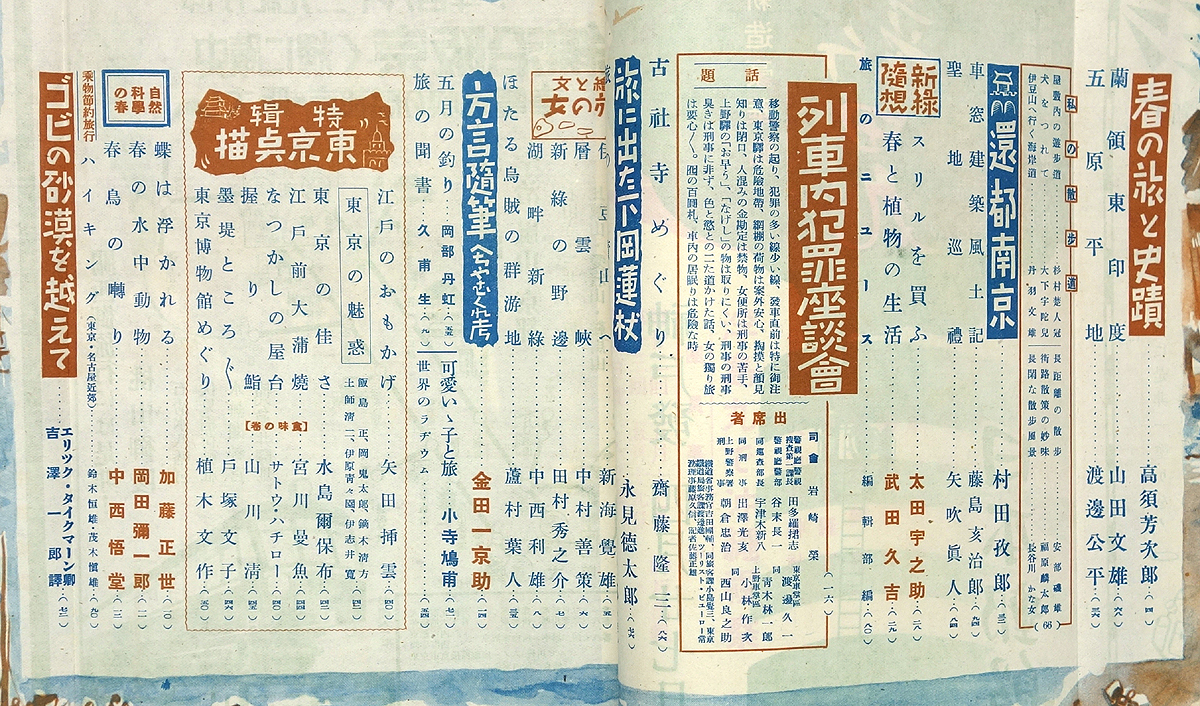 春の旅と史蹟……高須芳次郎…(四)
蘭領東印度……山田文雄…(六八)
五原平地……渡邊公平…(三六)
私の散歩道
屋敷内の遊歩道 杉村楚人冠
犬をつれて 大下宇陀兒
伊豆山へ行く海岸道 丹羽文雄
長距離の散歩 安部磯雄
街路散策の妙味 福原麟太郎
長閑な散歩風景 長谷川かな女
(66)
還都南京……村田孜郎…(三二)
車窓建築風土記……藤島亥治郎…(九四)
聖地巡禮……矢吹眞人…(八四)
新綠隨想
スリルを買ふ……太田宇之助…(二八)
春と植物の生活……武田久吉…(二九)
旅のニュース……編輯部編…(八〇)
列車内犯罪座談會……(一一六)
話題
移動警察の起り、犯罪の多い線少い線、發車直前は特に御注
意、東京驛は危險地帶、網棚の荷物は案外安心、掏摸と顏見
知りは閉口、人混みの金勘定は禁物、女便所は刑事の苦手、
上野驛の「お早う」、「なげし」の物は取りにくい、刑事の刑事
臭きは刑事に非ず、色と慾の二た道かけた話、女の獨り旅
は要心〱。囮の百圓札、車内の居眠りは危險な時
出席者
司會 岩崎榮
古社寺めぐり……齋藤隆三…(八六)
旅に出た下岡蓮杖……永見德太郎…(七六)
新海覺雄
曆雲峽……中村善策
新綠の野邊……田村秀之介
湖畔新綠……中西利雄…(八)
ほたる烏賊の群游地……蘆村葉人
方言隨筆 へちやむくれ考……金田一京助…(一四)
五月の釣り……岡部丹虹…
可愛いゝ子と旅……小寺鳩甫…(七二)
旅の聞書……久甫生…(一九)
世界のラヂウム……(五四)
特輯 東京點描
江戸のおもかげ……矢田挿雲
東京の魅惑
飯島正、岡鬼太郎、鏑木淸方
土師淸二、伊原靑々園、伊志井寬
東京の佳さ……水島爾保布
【食味の卷】
江戸前大蒲燒……宮川曼魚
なつかしの屋台……サトウ・ハチロー
握り鮨……山川淸
墨堤ところ〲……戸塚文子
東京博物館めぐり……植木文作
自然科學の春
蝶は浮かれる……加藤正世…(一〇)
春の水中動物……岡田彌一郎
春鳥の囀り……中西悟堂…(一三)
乘物節約旅行
ハイキング(東京・名古屋近郊)……鈴木恒雄・茂木愼雄…(九〇)
ゴビの砂漠を越えて……エリック・タイクマーン卿
吉澤一郎譯…(七二)